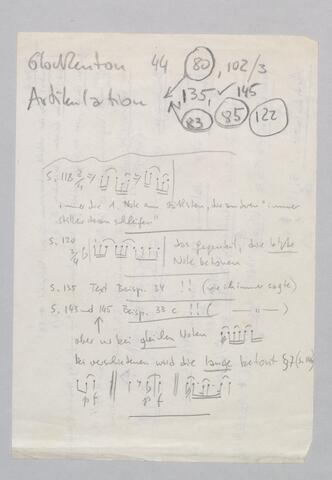 Glockenton 44 80, 102/3
Artikulation 135, ✓ 145
83 85 122
S. 118 2/4
immer die 1. Note am stärksten, die andern "immer
stiller
S. 120
3/4 das Gegenteil, die letzte
Note betonen
S. 135 Text Beisp. 34 !! (wie ich immer sagte)
S. 143 und 145 Beisp. 33 c !! ( — " — )
aber nur bei gleichen Noten
bei verschiedenen wird die lange betont
p f p f